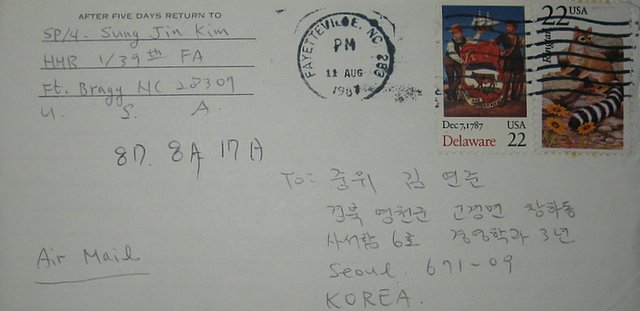 AFTER FIVE DAYS RETURN TO
SP/4. Sung Jin Kim
HHB 1/39th FA
Ft. Bragg NC 28307
U. S. A.
FAYETTEVILLE, NC 283
PM
11 AUG
1987
22 USA
Ringtail
Dec 7, 1787 USA
Delaware 22
87. 8月 17日
To: 중위 김 연준
경북 영천군 고경면 창하동
사서함 6호 경영학과 3년
Seoul 671-09
KOREA.
Air Mail